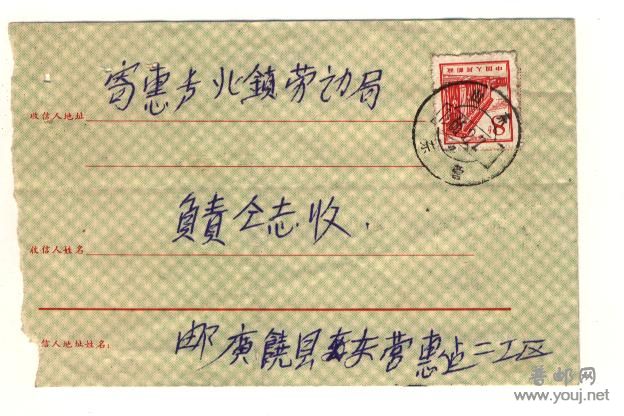 中国人民邮政
8
寄惠专北鎮劳动局
收信人地址
負責仝志收.
收信人姓名
邮廣饒县东营惠 二工区
信人地址姓名:
普邮网
www.youj.net